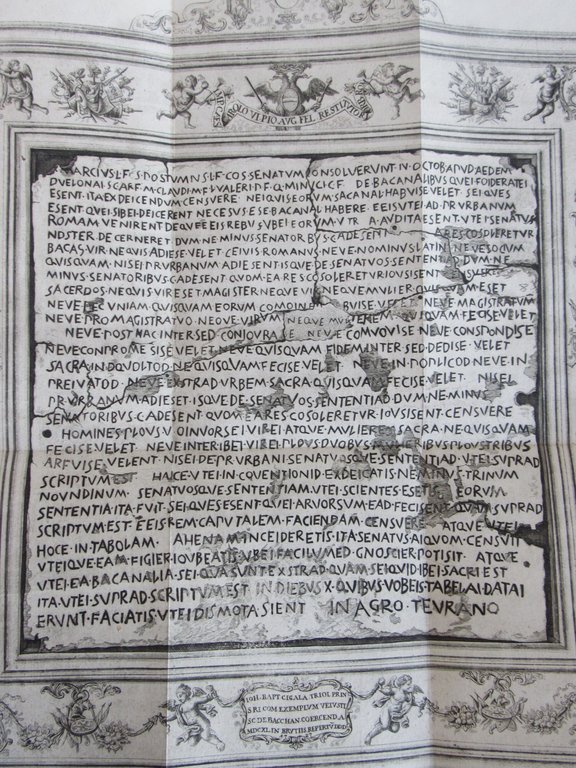 ARCIVS·L·F·S·POSTVMIVS·L·F·COS·SENATVM ONSOLVERVNT·N·OCTOB·APVD·AEDEM
DVELONAI·SC·ARF·M·CLAVDI·M·F·L·VALERI·P·F·Q·MINVCI·C·F· DE·BACANALIBVS·QVEI·FOIDERATEI
ESENT·ITA·EXDEICENDVM·CENSVERE· NEIQVIS·EORVM·SACANAL·HABVISE·VELET SEI·QVES
ESENT·QVEI·SIBEI·DEICERENT NECESVS·ESE·BACANAL·HABERE·EEIS·VTEI·AD·PR·VRBANVM
ROMAM·VENIRENT·DE·QVE·EEIS·REBVS·VBEI·EORVM·VTR A·AVDITA·ESENT·VTEI·SENATVS
NOSTER·DECERNERET· DVM·NE·MINVS·SENATORBVS·C·ADESENT A·RES·COSOLERETVR
BACAS·VIR·NEQVIS·ADIESE·VELET·CEIVIS·ROMANVS·NEVE·NOMINVS·LATIN NEVE·SOCIVM
QVISQVAM·NISEI·PR·VRBANVM·ADIESENT·ISQVE·DE·SENATVOS·SENTENTIAD·DVM·NE
MINVS·SENATORIBVS·C·ADESENT·QVOM·EA·RES·COSOLERETVR·IOVSISENT·CENSVERE
SACERDOS·NEQVIS·VIR·ESET·MAGISTER·NEQVE·VIR·NEQVE·MVLIER·QVISQVAM·ESET
NEVE·PECVNIAM·QVISQVAM·EORVM·COMOINEM ABVISE·VELET·NEVE·MAGISTRATVM
NEVE·PRO·MAGISTRATVO·NEQVE·VIRVM NEQVE·MVLIEREM·QVISQVAM·FECISE·VELET
NEVE·POST·HAC·INTER·SED·CONIOVRASE NEVE·COMVOVISE·NEVE·CONSPONDISE
NEVE·CONPROMESISE·VELET·NEVE·QVISQVAM·FIDEM·INTER·SED·DEDISE·VELET
SACRA·IN·DQVOLTOD·NE·QVISQVAM·FECISE·VELET NEVE·IN·POPLICOD·NEVE·IN
PREIVATOD·NEVE·EXSTRAD·VRBEM·SACRA·QVISQVAM·FECISE·VELET· NISEI
PR·VRBANVM·ADIESET·ISQVE·DE·SENATVOS·SENTENTIAD·DVM·NE·MINVS
SENATORIBVS·C·ADESENT·QVOM·EA·RES·COSOLERETVR·IOVSISENT·CENSVERE
HOMINES·PLOVS·V·OINVORSEI·VIREI·ATQVE·MVLIERES·SACRA·NE·QVISQVAM
FECISE·VELET·NEVE·INTER·IBEI·VIREI·PLOVS·DVOBVS·MVLIERIBVS·PLOVS·TRIBVS
ARFVISE·VELENT·NISEI·DE·PR·VRBANI·SENATVOSQVE·SENTENTIAD·VTEI·SVPRAD
SCRIPTVM·EST HAICE·VTEI·IN·COVENTIONID·EXDEICATIS·NE·MINVS·TRINVM
NOVNDINVM· SENATVOSQVE·SENTENTIAM·VTEI·SCIENTES·ESETIS EORVM
SENTENTIA·ITA·FVIT·SEI·QVES·ESENT·QVEI·ARVORSVM·EAD·FECISENT·QVAM·SVPRAD
SCRIPTVM·EST·EEIS·REM·CAPVTALEM·FACIENDAM·CENSVERE ATQVE·VTEI
HOCE·IN·TABOLAM· AHENAM·INCEIDERETIS·ITA·SENATVS·AIQVOM·CENSVIT
VTEIQVE·EAM·FIGIER·IOVBEATIS·VBEI·FACILVMED·GNOSCIER·POTISIT· ATQVE
VTEI·EA·BACANALIA·SEI·QVA·SVNT·EXSTRAD·QVAM·SEI·QVID·IBEI·SACRI·EST
ITA·VTEI·SVPRAD·SCRIPTVM·EST IN·DIEBVS·X·QVIBVS·VOBEIS·TABELAI·DATAI
ERVNT·FACIATIS·VTEI·DISMOTA·SIENT IN·AGRO·TEVRANO
IOH. BAPT CIGALA TRIOL. PRIN
SRI COM. EXEMPLVM VETVSTI
SC. DE BACCHAN. COERCEND. A
MDCXL IN BRVTIIS